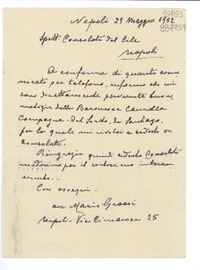 Napoli 29 Maggio 1952
Spett. Consolato del Cile
Napoli
A conferma di quanto comu
nicato per telefono, informo che mi
sono direttamente pervenute buone
notizie della Baronessa Camilla
Compagna - Del Lardo, da Santiago,
per la quale mi rivolsi a codesto on.
Consolato.
Ringrazio quindi codesto Consolato
medesimo per il cortese suo interessa
mento.
Con ossequi.
avv. Mario Grossi
Napoli - Via Cimarosa 25